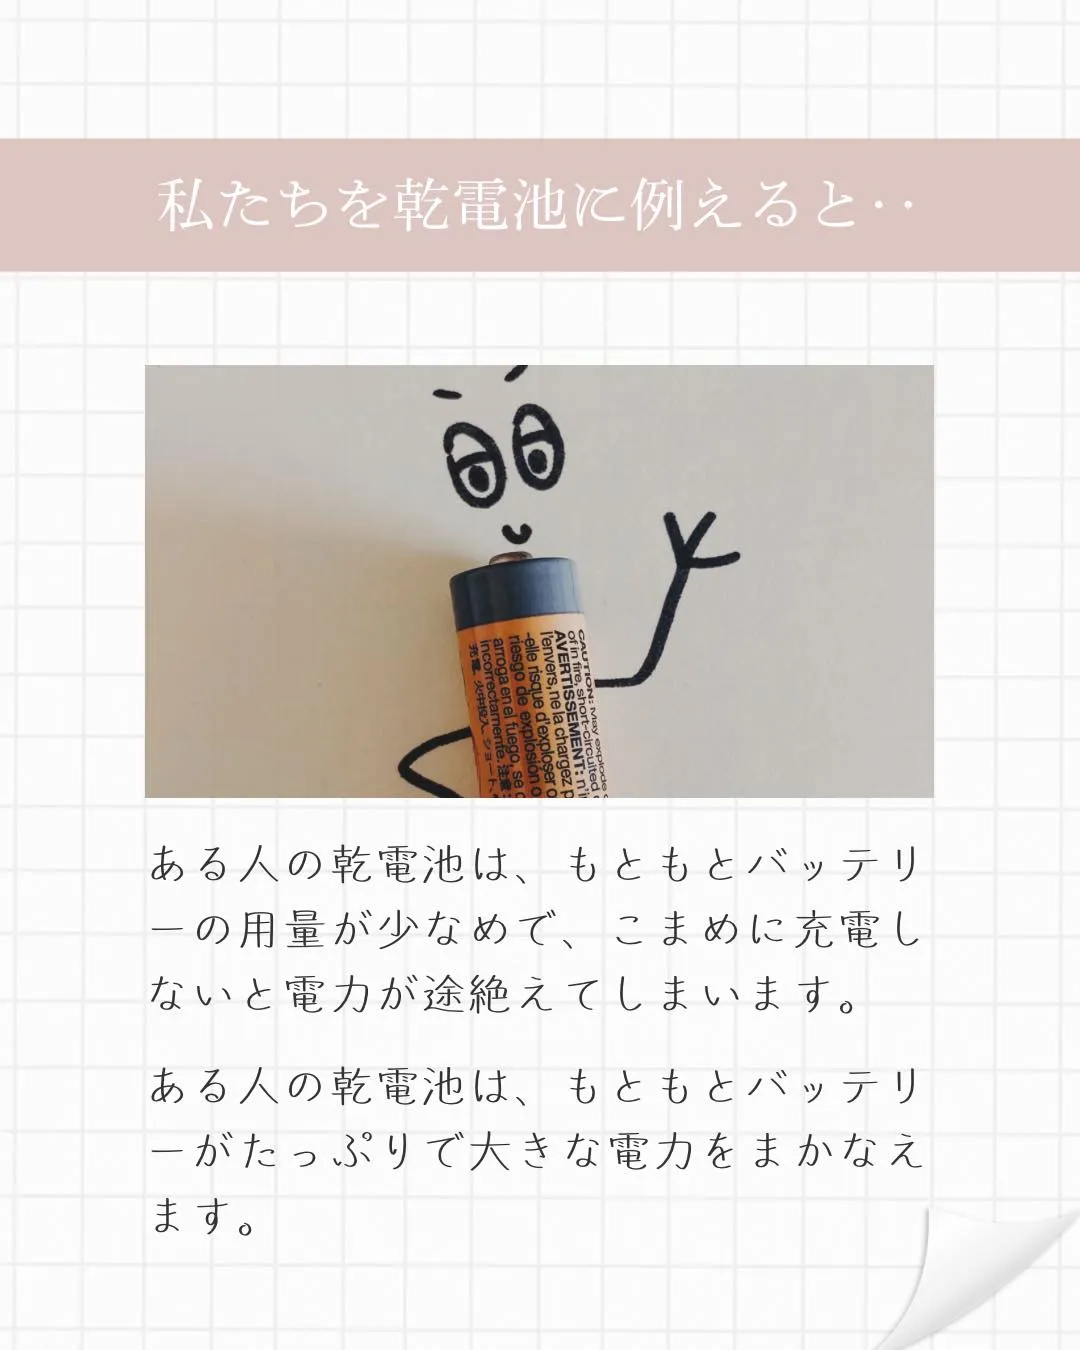 私たちを乾電池に例えると‥
CAUTION: May explode
of in fire, short-circuited
AVERTISSEMENT: n'i
l'envers, ne la chargez p
-elle risque d'exploser o
riesgo de explosión o
arroga en el fuego, se c
incorrectamente. 注意:
充電、火中投入、ショート、
ある人の乾電池は、もともとバッテリ
ーの用量が少なめで、こまめに充電し
ないと電力が途絶えてしまいます。
ある人の乾電池は、もともとバッテリ
ーがたっぷりで大きな電力をまかなえ
ます。